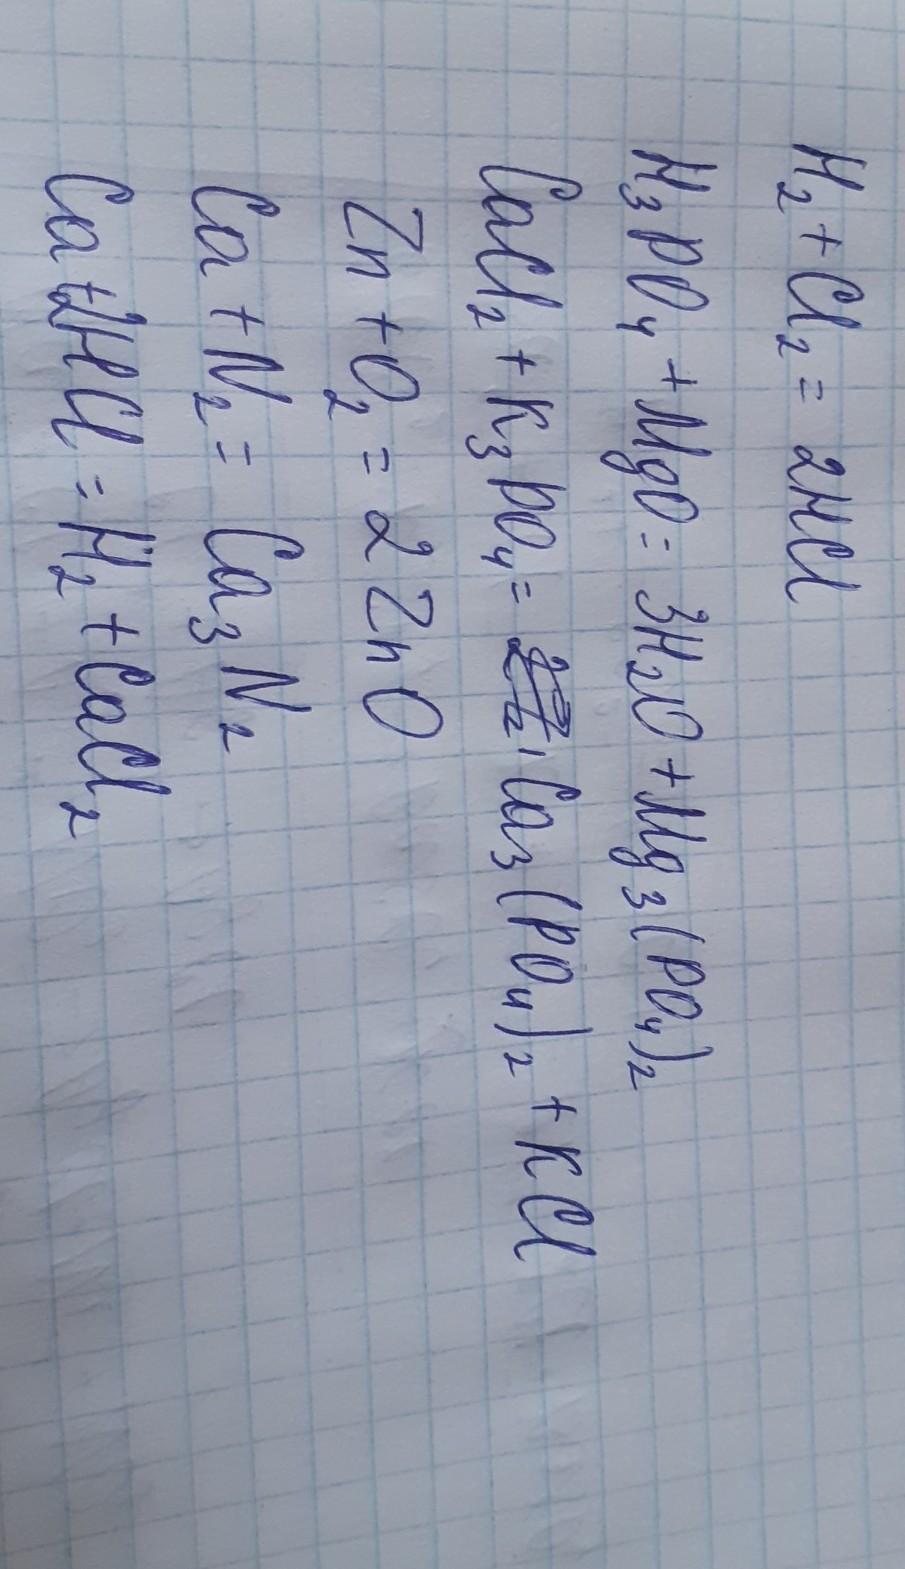 H₂ + Cl₂ = 2HCl
H₃PO₄ + MgO = 3H₂O + Mg₃(PO₄)₂
CaCl₂ + K₃PO₄ = Ca₃(PO₄)₂ + KCl
Zn + O₂ = 2ZnO
Ca + N₂ = Ca₃N₂
Ca + 2HCl = H₂ + CaCl₂